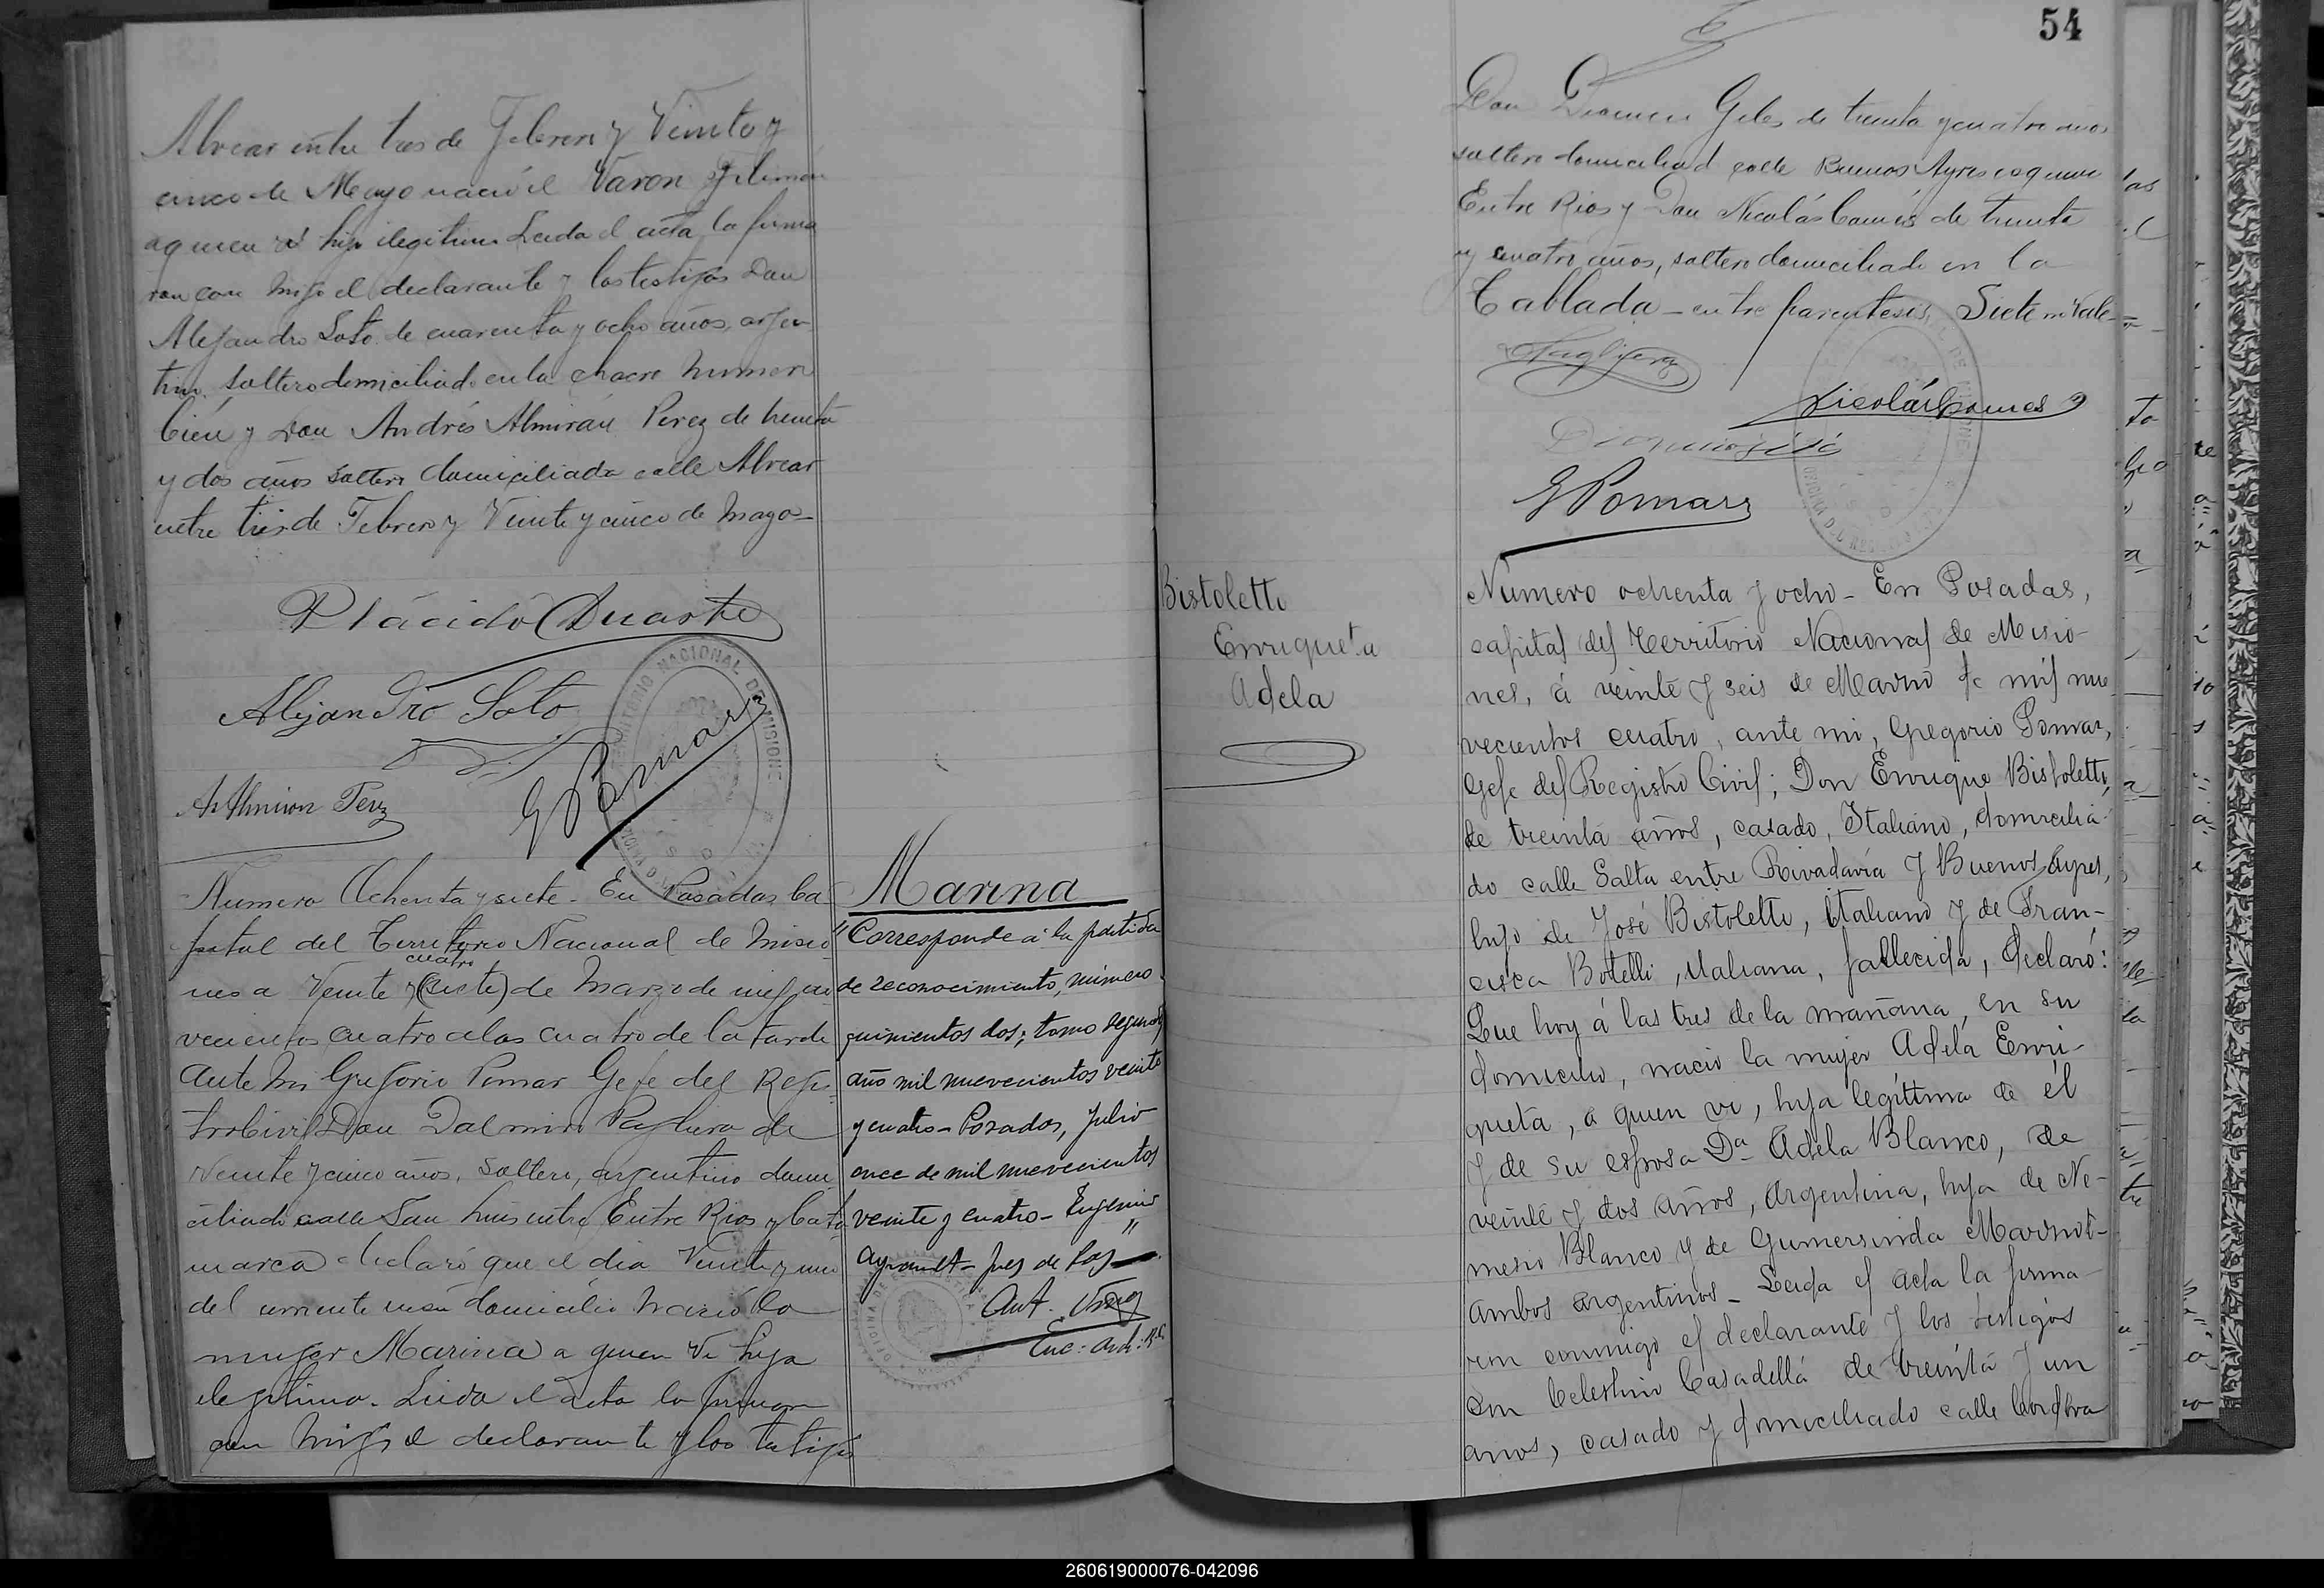 Alvear entre tres de Febrero y Veinte y
cinco de Mayo nació el Varon Filimón
a quien vi hijo ilegitimo Leida el acta la firma
ron con migo el declarante y los testigos Don
Alejandro Soto de cuarenta y ocho años, argen
tino soltero domiciliado en la chacra numero
Cién y Don Andrés Almirán Perez de treinta
y dos años soltero domiciliado calle Alvear
entre tres de Febrero y Veinte y cinco de Mayo-
Plácido Duarte
Alejandro Soto
A Almiron Perez
G Pomar
TERRITORIO NACIONAL DE MISIONES
Numero Ochenta y siete. En Posadas Ca
pital del Territorio Nacional de Misio
cuatro
nes a Veinte y (siete) de Marzo de mil no
vecientos cuatro a las cuatro de la tarde
Ante mi Gregorio Pomar Gefe del Regis
tro Civil Don Dalmiro Pagliera de
Veinte y cinco años, soltero, argentino domi
ciliado calle San Luis entre Entre Rios y Cata
marca declaró que el dia Veinte y uno
del corriente en su domicilio nació la
mujer Marina a quien vi hija
ilegitima. Leida el acta la firmaron
con migo el declarante y los testigos
Marina
"Corresponde á la partida
de reconocimiento, número
quinientos dos; tomo segundo
año mil nuevecientos veinte
y cuatro - Posadas, Julio
once de mil nuevecientos
veinte y cuatro - Eugenio
Juez de Paz"
Enc: Arch: R.C.
54
Don Giles de treinta y cuatro años
soltero domiciliado calle Buenos Ayres esquina
Entre Rios y Don Nicolás Comés de treinta
y cuatro años, soltero domiciliado en la
Tablada - entre parentesis, Siete no Vale -
Nicolás Comes
G Pomar
Bistoletti
Enriqueta
Adela
Número ochenta y ocho - En Posadas,
capital del Territorio Nacional de Misio-
nes, á veinte y seis de Marzo de mil nue
vecientos cuatro, ante mi, Gregorio Pomar,
Gefe del Registro Civil; Don Enrique Bistoletti,
de treinta años, casado, Italiano, domicilia-
do calle Salta entre Rivadavia y Buenos Ayres,
hijo de José Bistoletti, Italiano y de Fran-
cisca Botelli, italiana, fallecida, declaró:
Que hoy á las tres de la mañana, en su
domicilio, nació la mujer Adela Enri-
queta, a quien vi, hija legítima de él
y de su esposa Da Adela Blanco, de
veinte y dos años, Argentina, hija de Ne-
mesio Blanco y de Gumersinda
ambos argentinos - Leida el acta la firma-
ron conmigo el declarante y los testigos
Don Celestino Casadellá de treinta y un
años, casado y domiciliado calle Cordoba
260619000076-042096